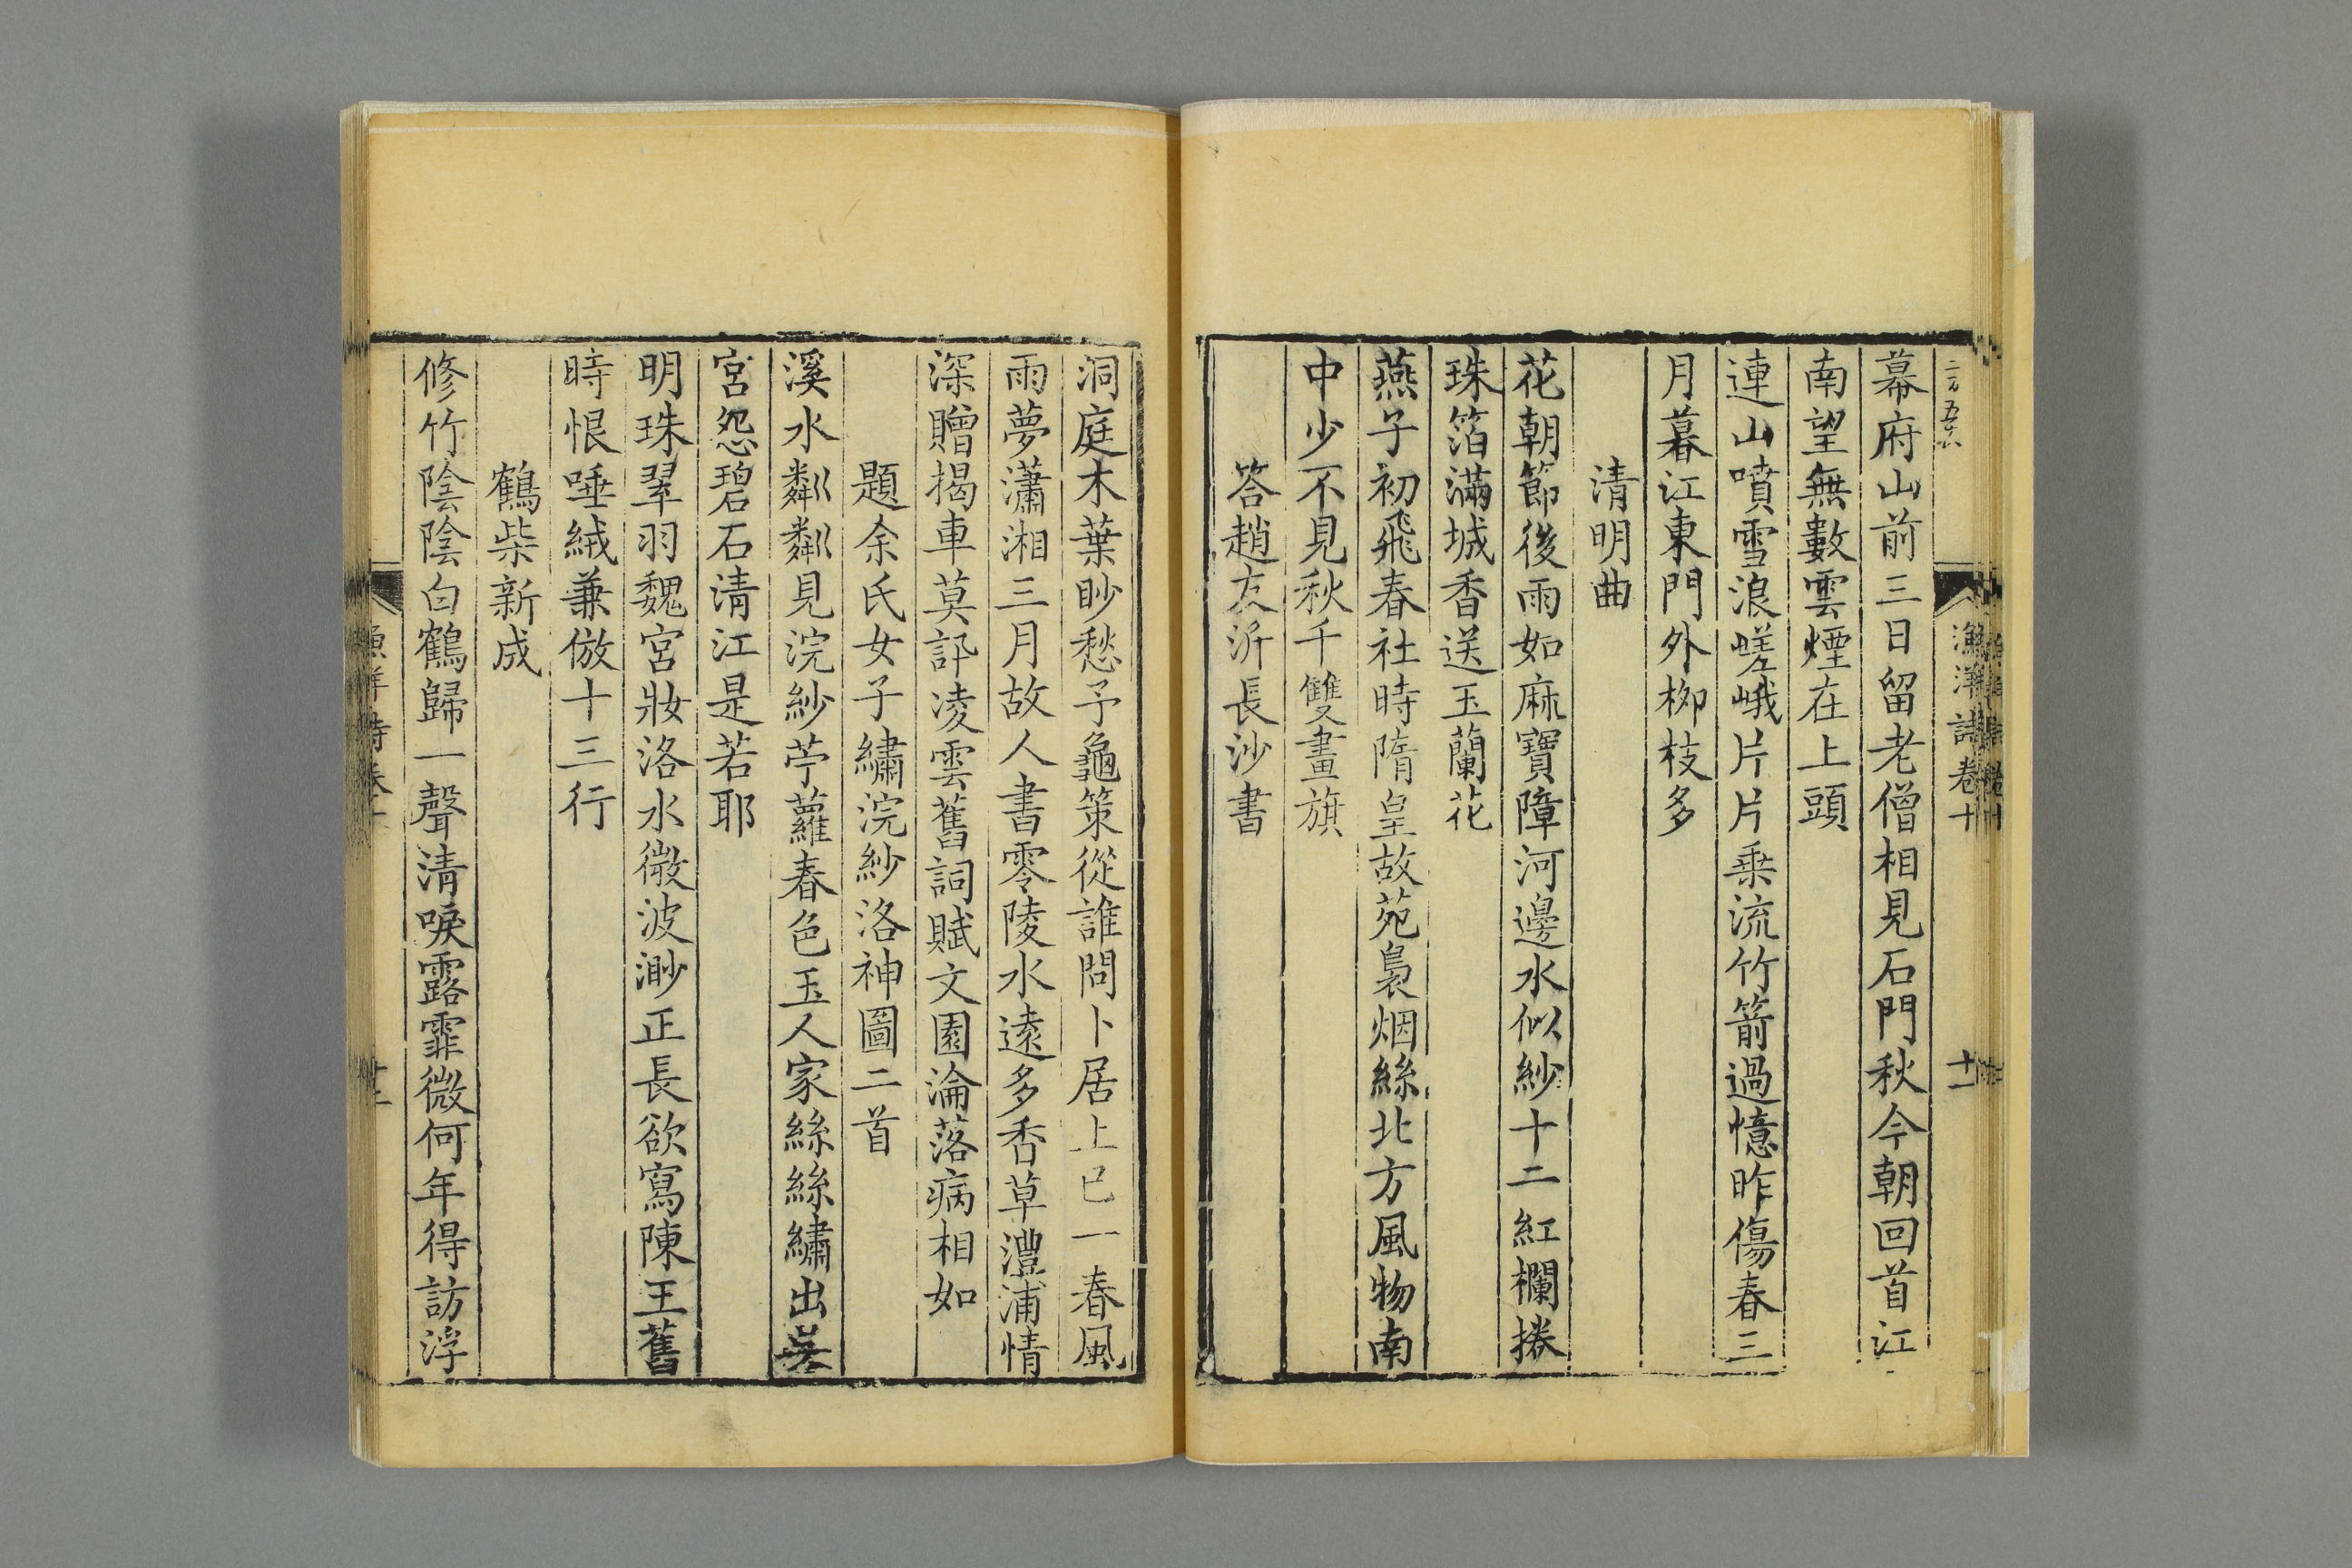 漁洋詩卷十
十一
幕府山前三日留老僧相見石門秋今朝回首江
南望無數雲煙在上頭
連山噴雪浪嵯峨片片乗流竹箭過憶昨傷春三
月暮江東門外柳枝多
清明曲
花朝節後雨如麻寶障河邊水似紗十二紅欄捲
珠箔滿城香送玉蘭花
燕子初飛春社時隋皇故苑裊烟絲北方風物南
中少不見秋千雙畫旗
答趙友沂長沙書
洞庭木葉眇愁予龜策從誰問卜居上巳一春風
雨夢瀟湘三月故人書零陵水遠多香草澧浦情
深贈揭車莫訝凌雲舊詞賦文園淪落病相如
題余氏女子繡浣紗洛神圖二首
溪水粼粼見浣紗苧蘿春色玉人家絲絲繡出吳
宮怨碧石清江是若耶
明珠翠羽魏宮妝洛水微波渺正長欲寫陳王舊
時恨唾絨兼倣十三行
鶴柴新成
修竹陰陰白鶴歸一聲清唳露霏微何年得訪浮